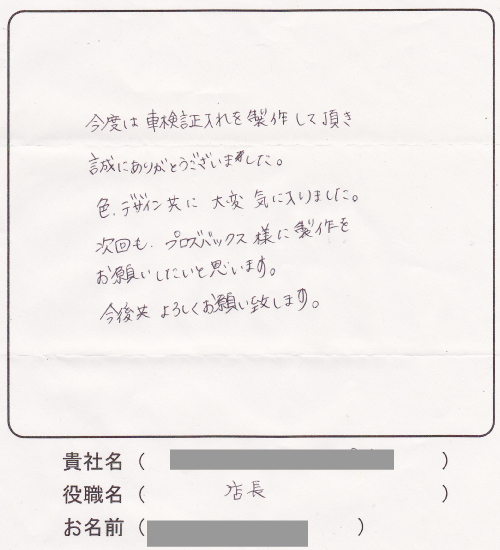 今度は車検証入れを製作して頂き
誠にありがとうございました。
色、デザイン共に 大変 気に入りました。
次回も、プロズバックス様に製作を
お願いしたいと思います。
今後共 よろしくお願い致します。
貴社名（ ）
役職名（ 店長 ）
お名前（ ）